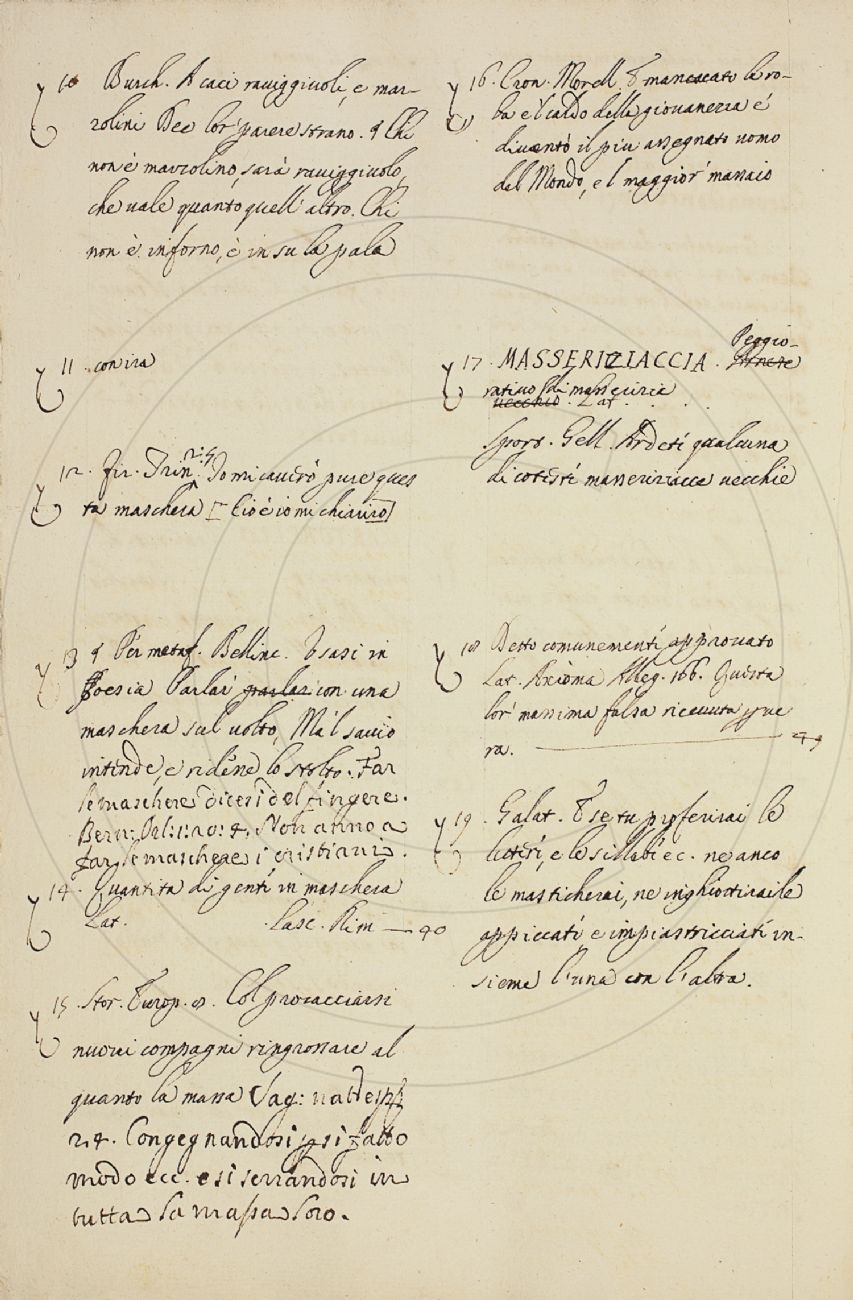 10 Burch. A caci raviggivoli, e mar-
zolini Dee lor' parere strano. ¶ Chi
non è marzolino, sarà raviggivolo,
che vale quanto quell' altro. Chi
non è in forno, è in su la pala
11. con ira
12. Fir. Trin. 2.4 Io mi caverò pure ques
ta maschera [Cioè io mi chiarirò]
13 ¶ Per metaf. Bellinc. Usasi in
Poesia Parlar parlar con una
maschera sul volto, Ma'l savio
intende, e ridene lo stolto. Far
le maschere dicesi del fingere.
Bern: Orl: 1: 20: 4. Non anno a
far le maschere i cristiani.
14. Quantità di genti in maschera
Lat. Lasc. Rim — 40
15. Stor. Europ. 8. Col procacciarsi
nuovi compagni ringrossare al
quanto la massa Sag: nat: esp:
24. Congegnandosi p si fatto
modo ecc. e si serrandosi in
tutta la massa loro.
16. Cron. Morell. E mancato la ro-
ba e'l caldo della giovanezza é
diventò il più assegnato uomo
del Mondo, e'l maggior' massaio
17. MASSERIZIACCIA. Peggio-
rativo di masserizia
vecchio. Lat.
Sport. Gell. Ardeti qualcuna
di cotesti masserizacce vecchie
18 Detto comunementi approvato
Lat. Axioma Alleg. 166. Questa
lor' massima falsa ricevuta p ve
ra. — 49
19. Galat. E se tu proferirai le
lettere, e le sillabi ec. ne anco
le masticherai, ne inghiottiraile
appiccati e impiastricciati in-
sieme l'una con l'altra.